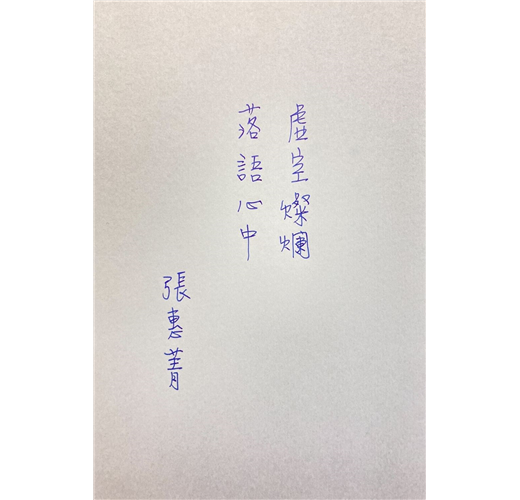 虛空燦爛
落語心中
張惠菁